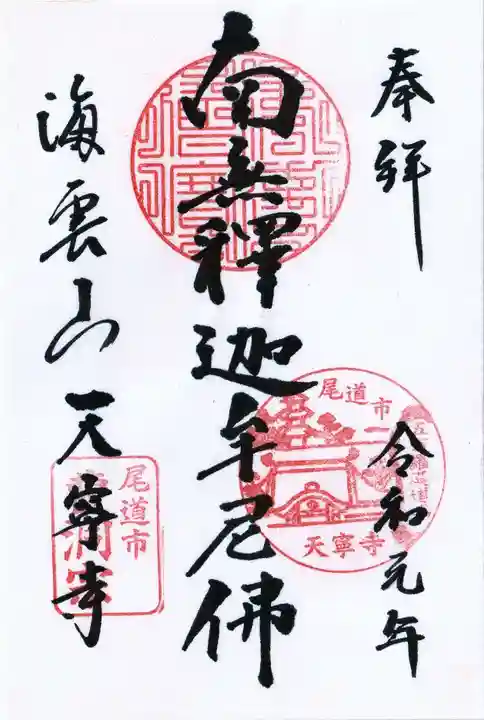 奉拝
令和元年
南無釋迦牟尼佛
海雲山天寧寺
尾道市
天寧寺
尾道市
曹洞宗